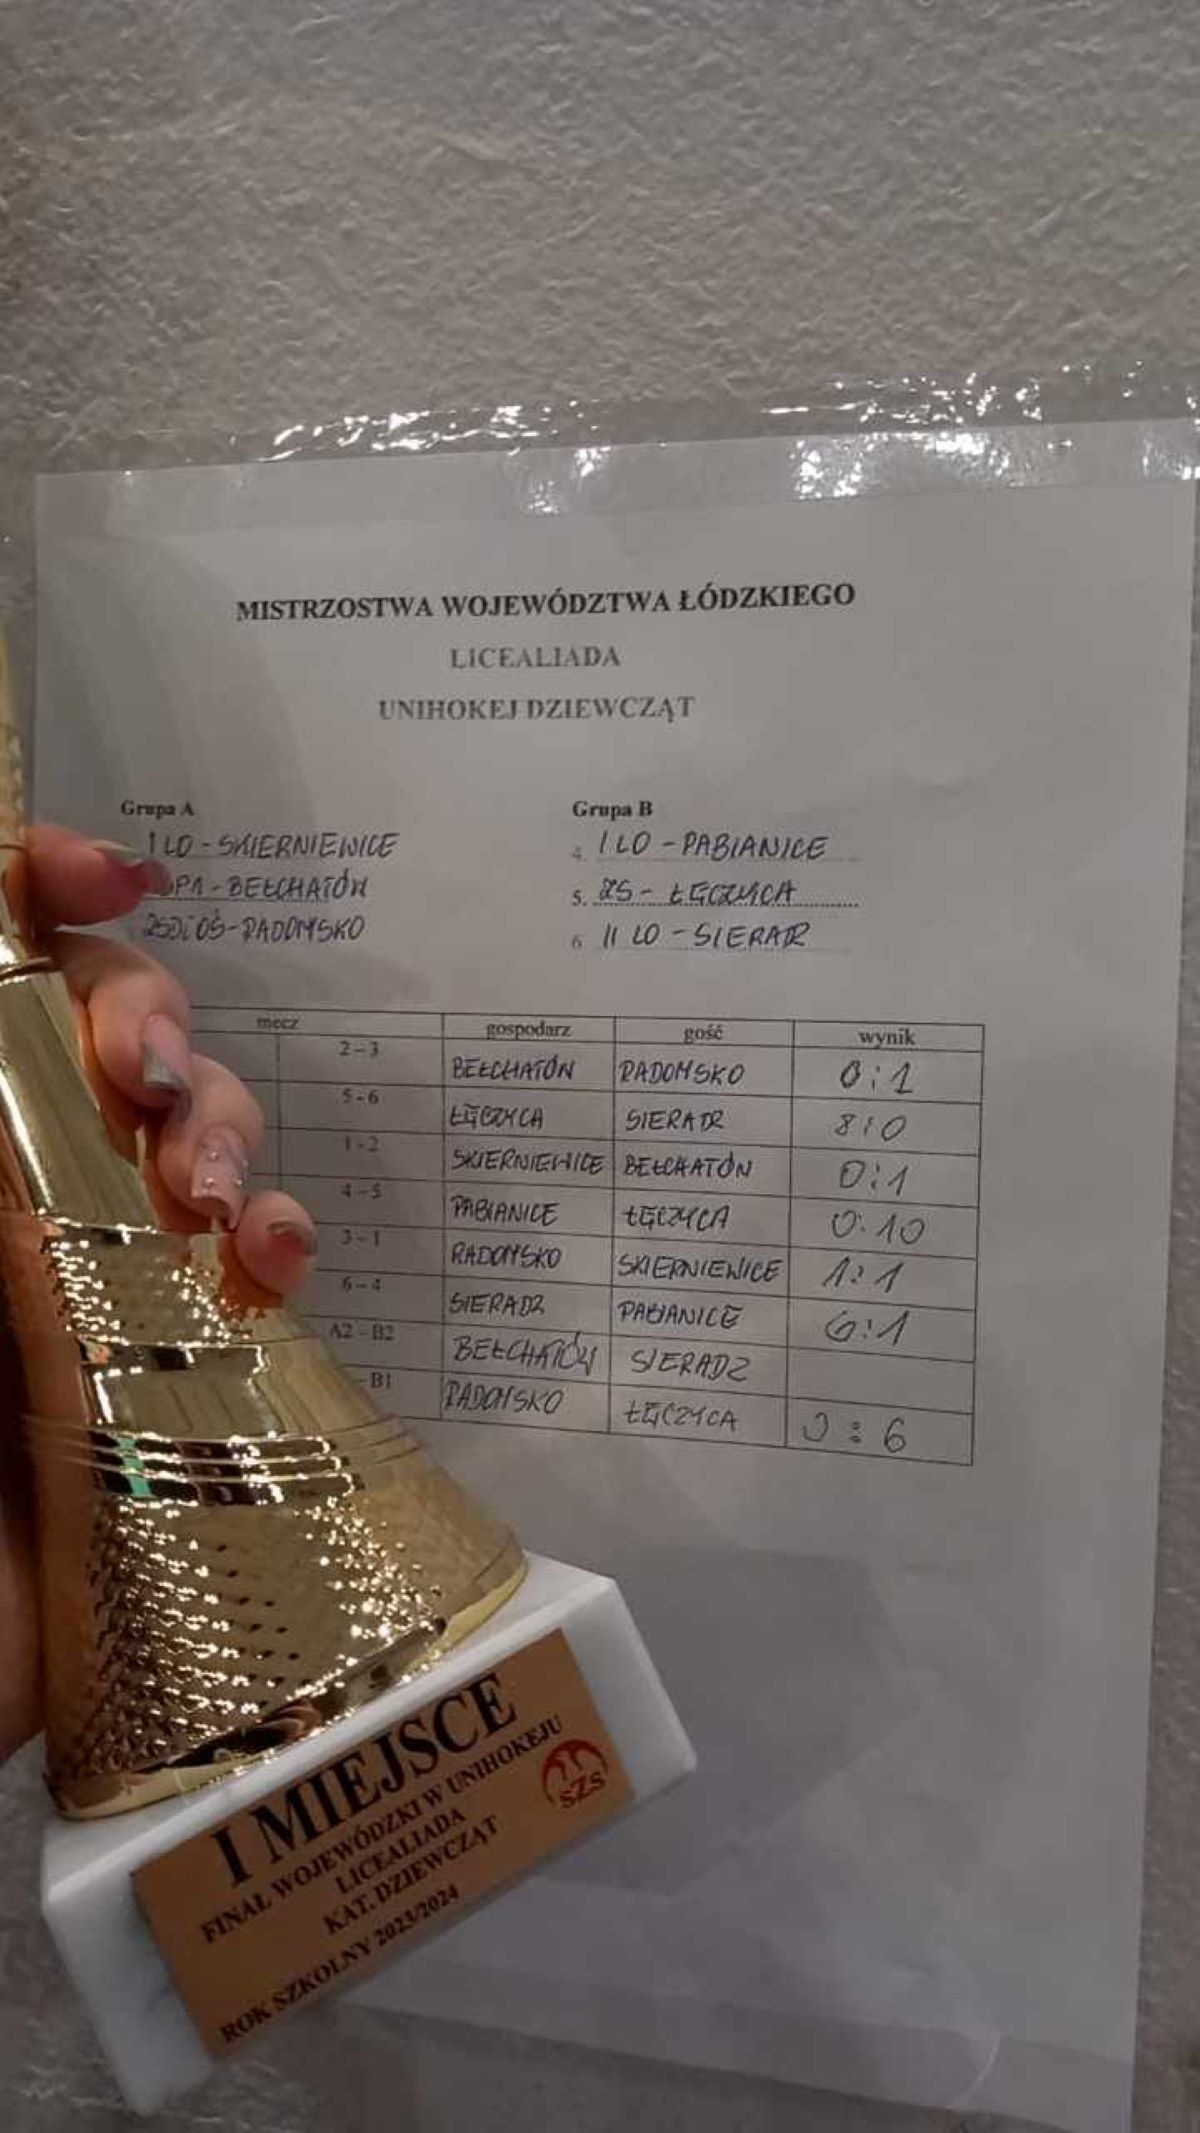 MISTRZOSTWA WOJEWÓDZTWA ŁÓDZKIEGO
LICEALIADA
UNIHOKEJ DZIEWCZĄT
Grupa A
I LO - SKIERNIEWICE
- BEŁCHATÓW
- RADOMSKO
Grupa B
4. I LO - PABIANICE
5. ZS - ŁĘCZYCA
6. II LO - SIERADZ
mecz gospodarz gość wynik
2 – 3 BEŁCHATÓW RADOMSKO 0:1
5 - 6 ŁĘCZYCA SIERADZ 8:0
1 - 2 SKIERNIEWICE BEŁCHATÓW 0:1
4 – 5 PABIANICE ŁĘCZYCA 0:10
3 – 1 RADOMSKO SKIERNIEWICE 1:1
6 – 4 SIERADZ PABIANICE 6:1
A2 - B2 BEŁCHATÓW SIERADZ
- B1 RADOMSKO ŁĘCZYCA 0:6
I MIEJSCE
FINAŁ WOJEWÓDZKI W UNIHOKEJU
LICEALIADA
KAT. DZIEWCZĄT
ROK SZKOLNY 2023/2024
SZS